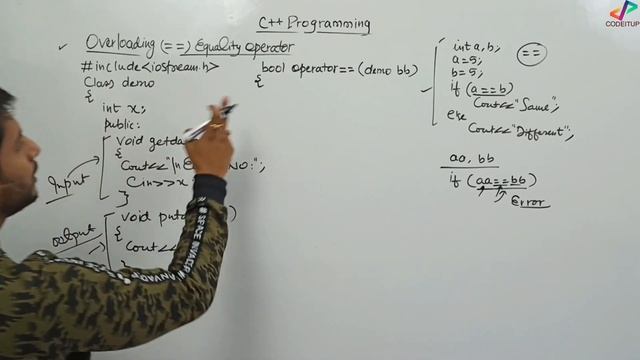 C++ Programming
CODEITUP
✓ Overloading (==) Equality operator
#include<iostream.h>
Class demo
{
int x;
public:
void getda
{
Cout<<"\n E No:";
Cin>>x
}
Input
void puto )
{
Cout<<
}
output
bool operator==(demo bb)
{
int a,b;
a=5;
b=5;
if (a==b)
Cout<<"Same";
else
Cout<<"Different";
==
aa, bb
if (aa==bb)
Error